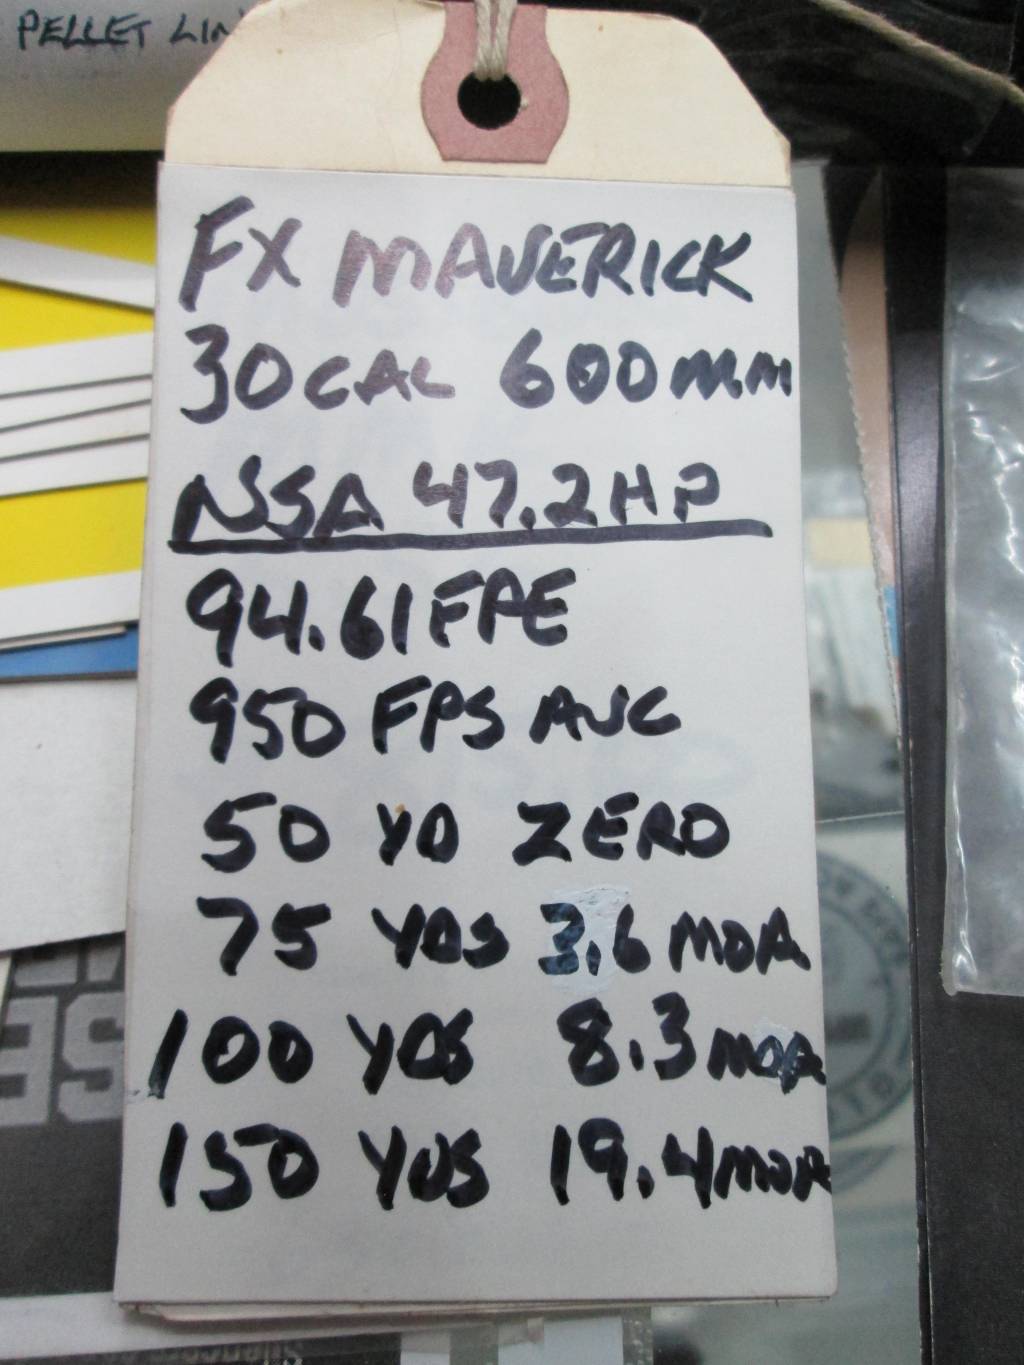 PELLET LIN
FX MAVERICK
30CAL 600MM
NSA 47.2HP
94.61FPE
950 FPS AVG
50 YD ZERO
75 YDS 3.6 MOA
100 YDS 8.3 MOA
150 YDS 19.4 MOA